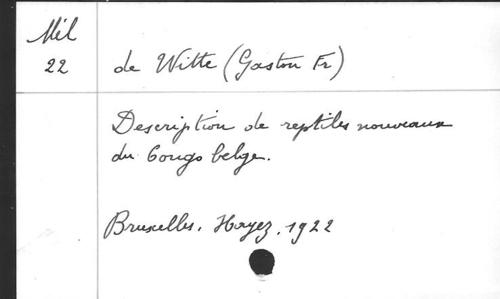 Mél
22
de Witte (Gaston Fr)
Description de reptiles nouveaux
du Congo belge.
Bruxelles, Hayez, 1922